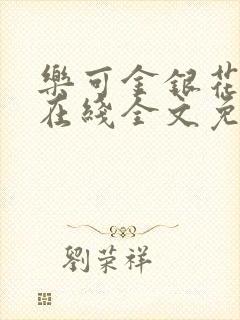 樂可金銀花
在綫全文免
劉荣祥